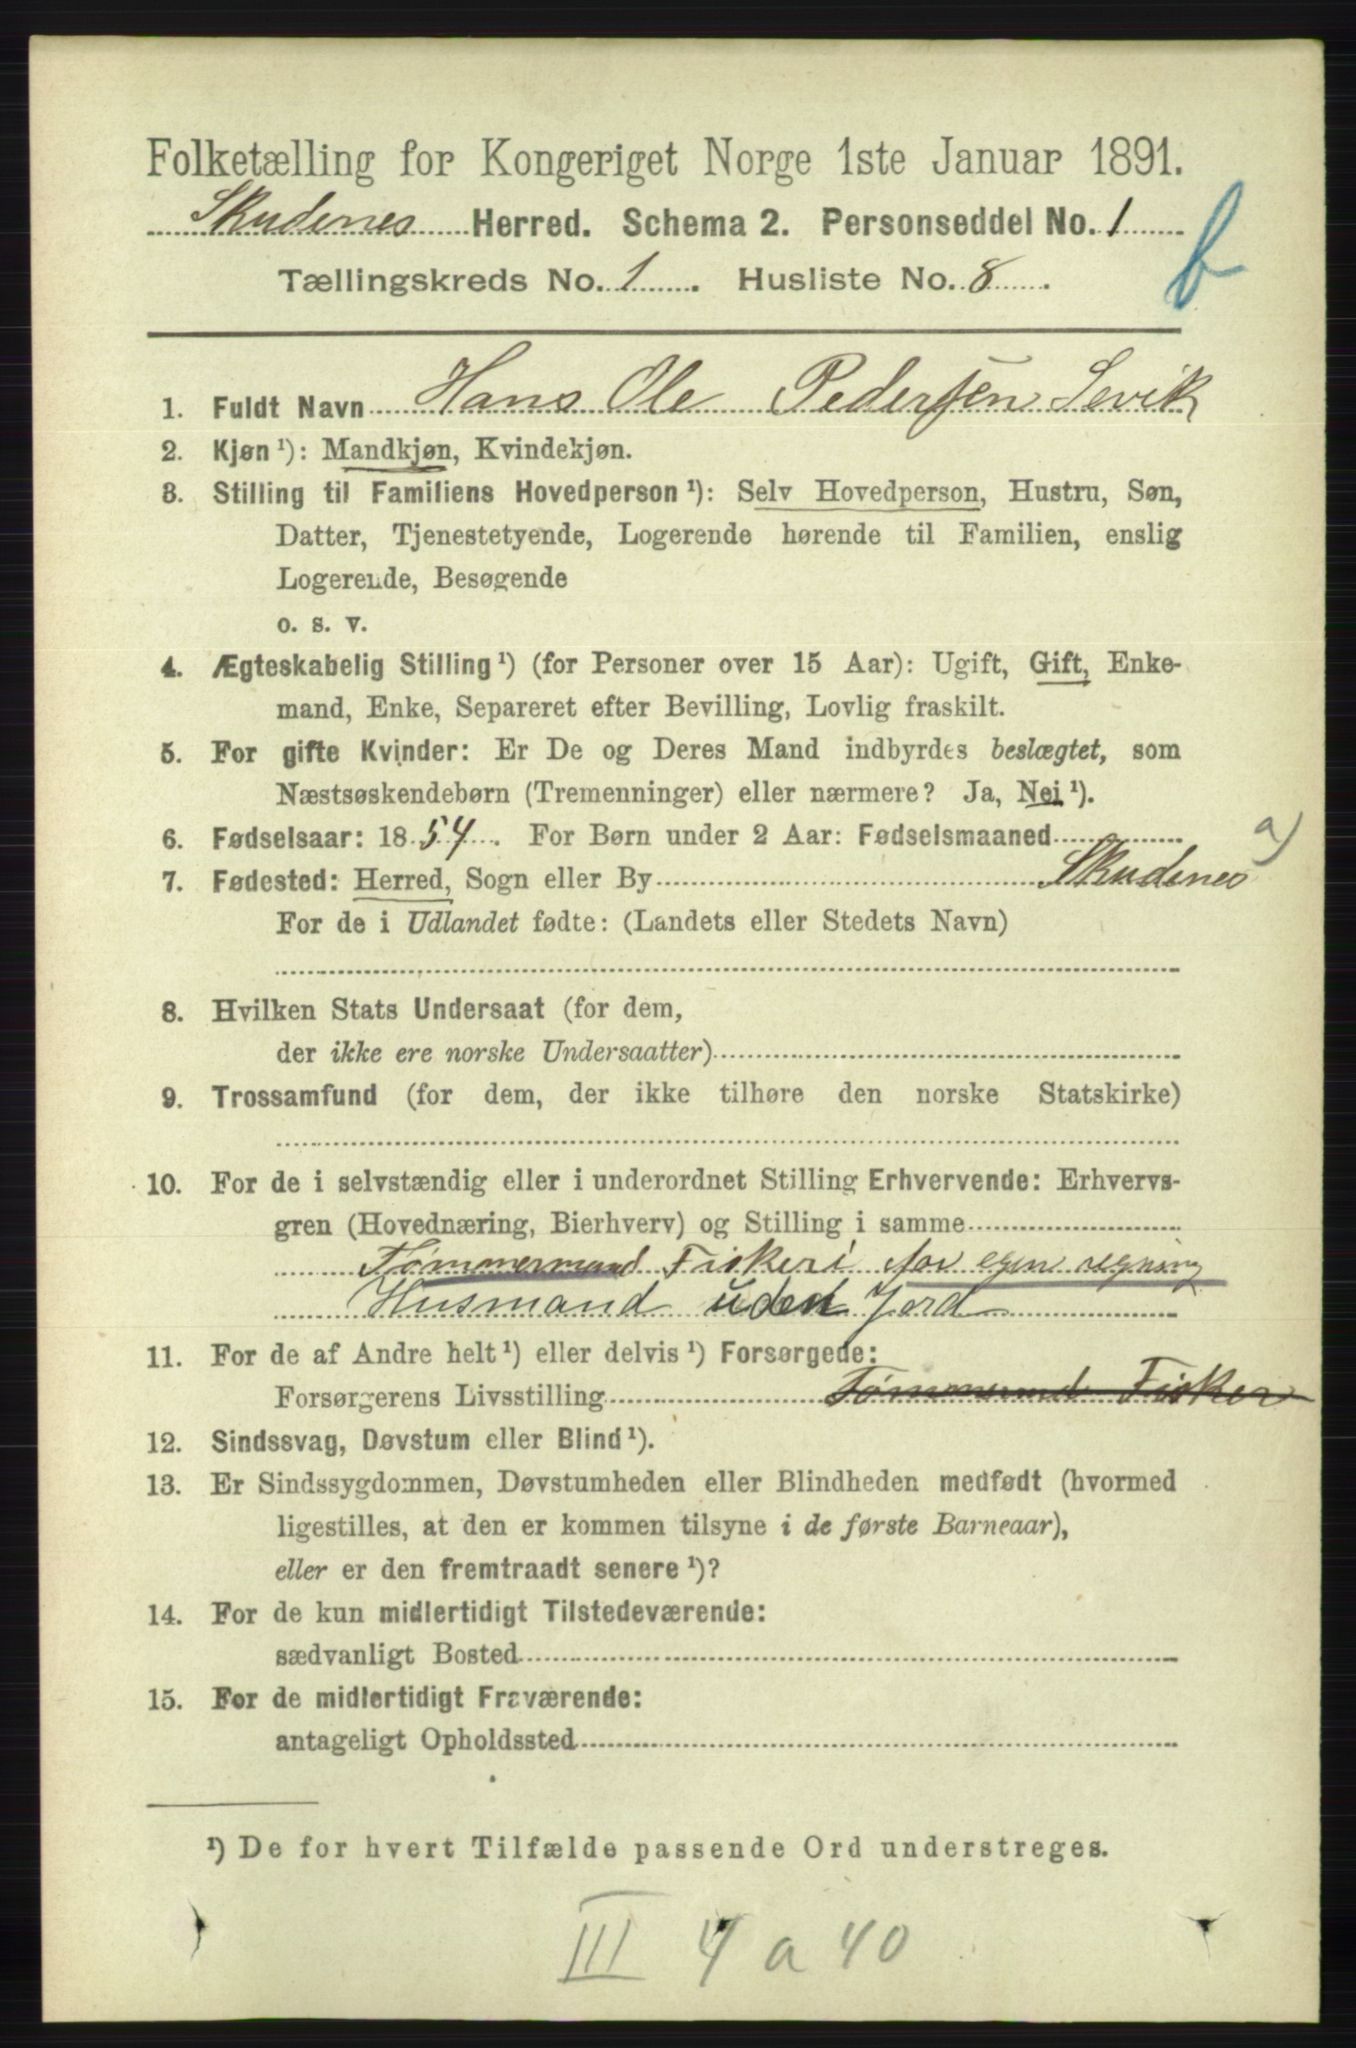 Folketælling for Kongeriget Norge 1ste Januar 1891.
Skudenes Herred. Schema 2. Personseddel No. 1
Tællingskreds No. 1. Husliste No. 8.
b
1. Fuldt Navn Hans Ole Pedersen Sevik
2. Kjøn ¹): Mandkjøn, Kvindekjøn.
3. Stilling til Familiens Hovedperson ¹): Selv Hovedperson, Hustru, Søn,
Datter, Tjenestetyende, Logerende hørende til Familien, enslig
Logerende, Besøgende
o. s. v.
4. Ægteskabelig Stilling ¹) (for Personer over 15 Aar): Ugift, Gift, Enke-
mand, Enke, Separeret efter Bevilling, Lovlig fraskilt.
5. For gifte Kvinder: Er De og Deres Mand indbyrdes beslægtet, som
Næstsøskendebørn (Tremenninger) eller nærmere? Ja, Nei ¹).
6. Fødselsaar: 1854. For Børn under 2 Aar: Fødselsmaaned
a)
7. Fødested: Herred, Sogn eller By Skudenes
For de i Udlandet fødte: (Landets eller Stedets Navn)
8. Hvilken Stats Undersaat (for dem,
der ikke ere norske Undersaatter)
9. Trossamfund (for dem, der ikke tilhøre den norske Statskirke)
10. For de i selvstændig eller i underordnet Stilling Erhvervende: Erhvervs-
gren (Hovednæring, Bierhverv) og Stilling i samme
Tømmermand Fiskeri for egen regning
Husmand uden Jord
11. For de af Andre helt ¹) eller delvis ¹) Forsørgede:
Forsørgerens Livsstilling Tømmermd Fisker
12. Sindssvag, Døvstum eller Blind ¹).
13. Er Sindssygdommen, Døvstumheden eller Blindheden medfødt (hvormed
ligestilles, at den er kommen tilsyne i de første Barneaar),
eller er den fremtraadt senere ¹)?
14. For de kun midlertidigt Tilstedeværende:
sædvanligt Bosted
15. For de midlertidigt Fraværende:
antageligt Opholdssted
¹) De for hvert Tilfælde passende Ord understreges.
III 4 a 40